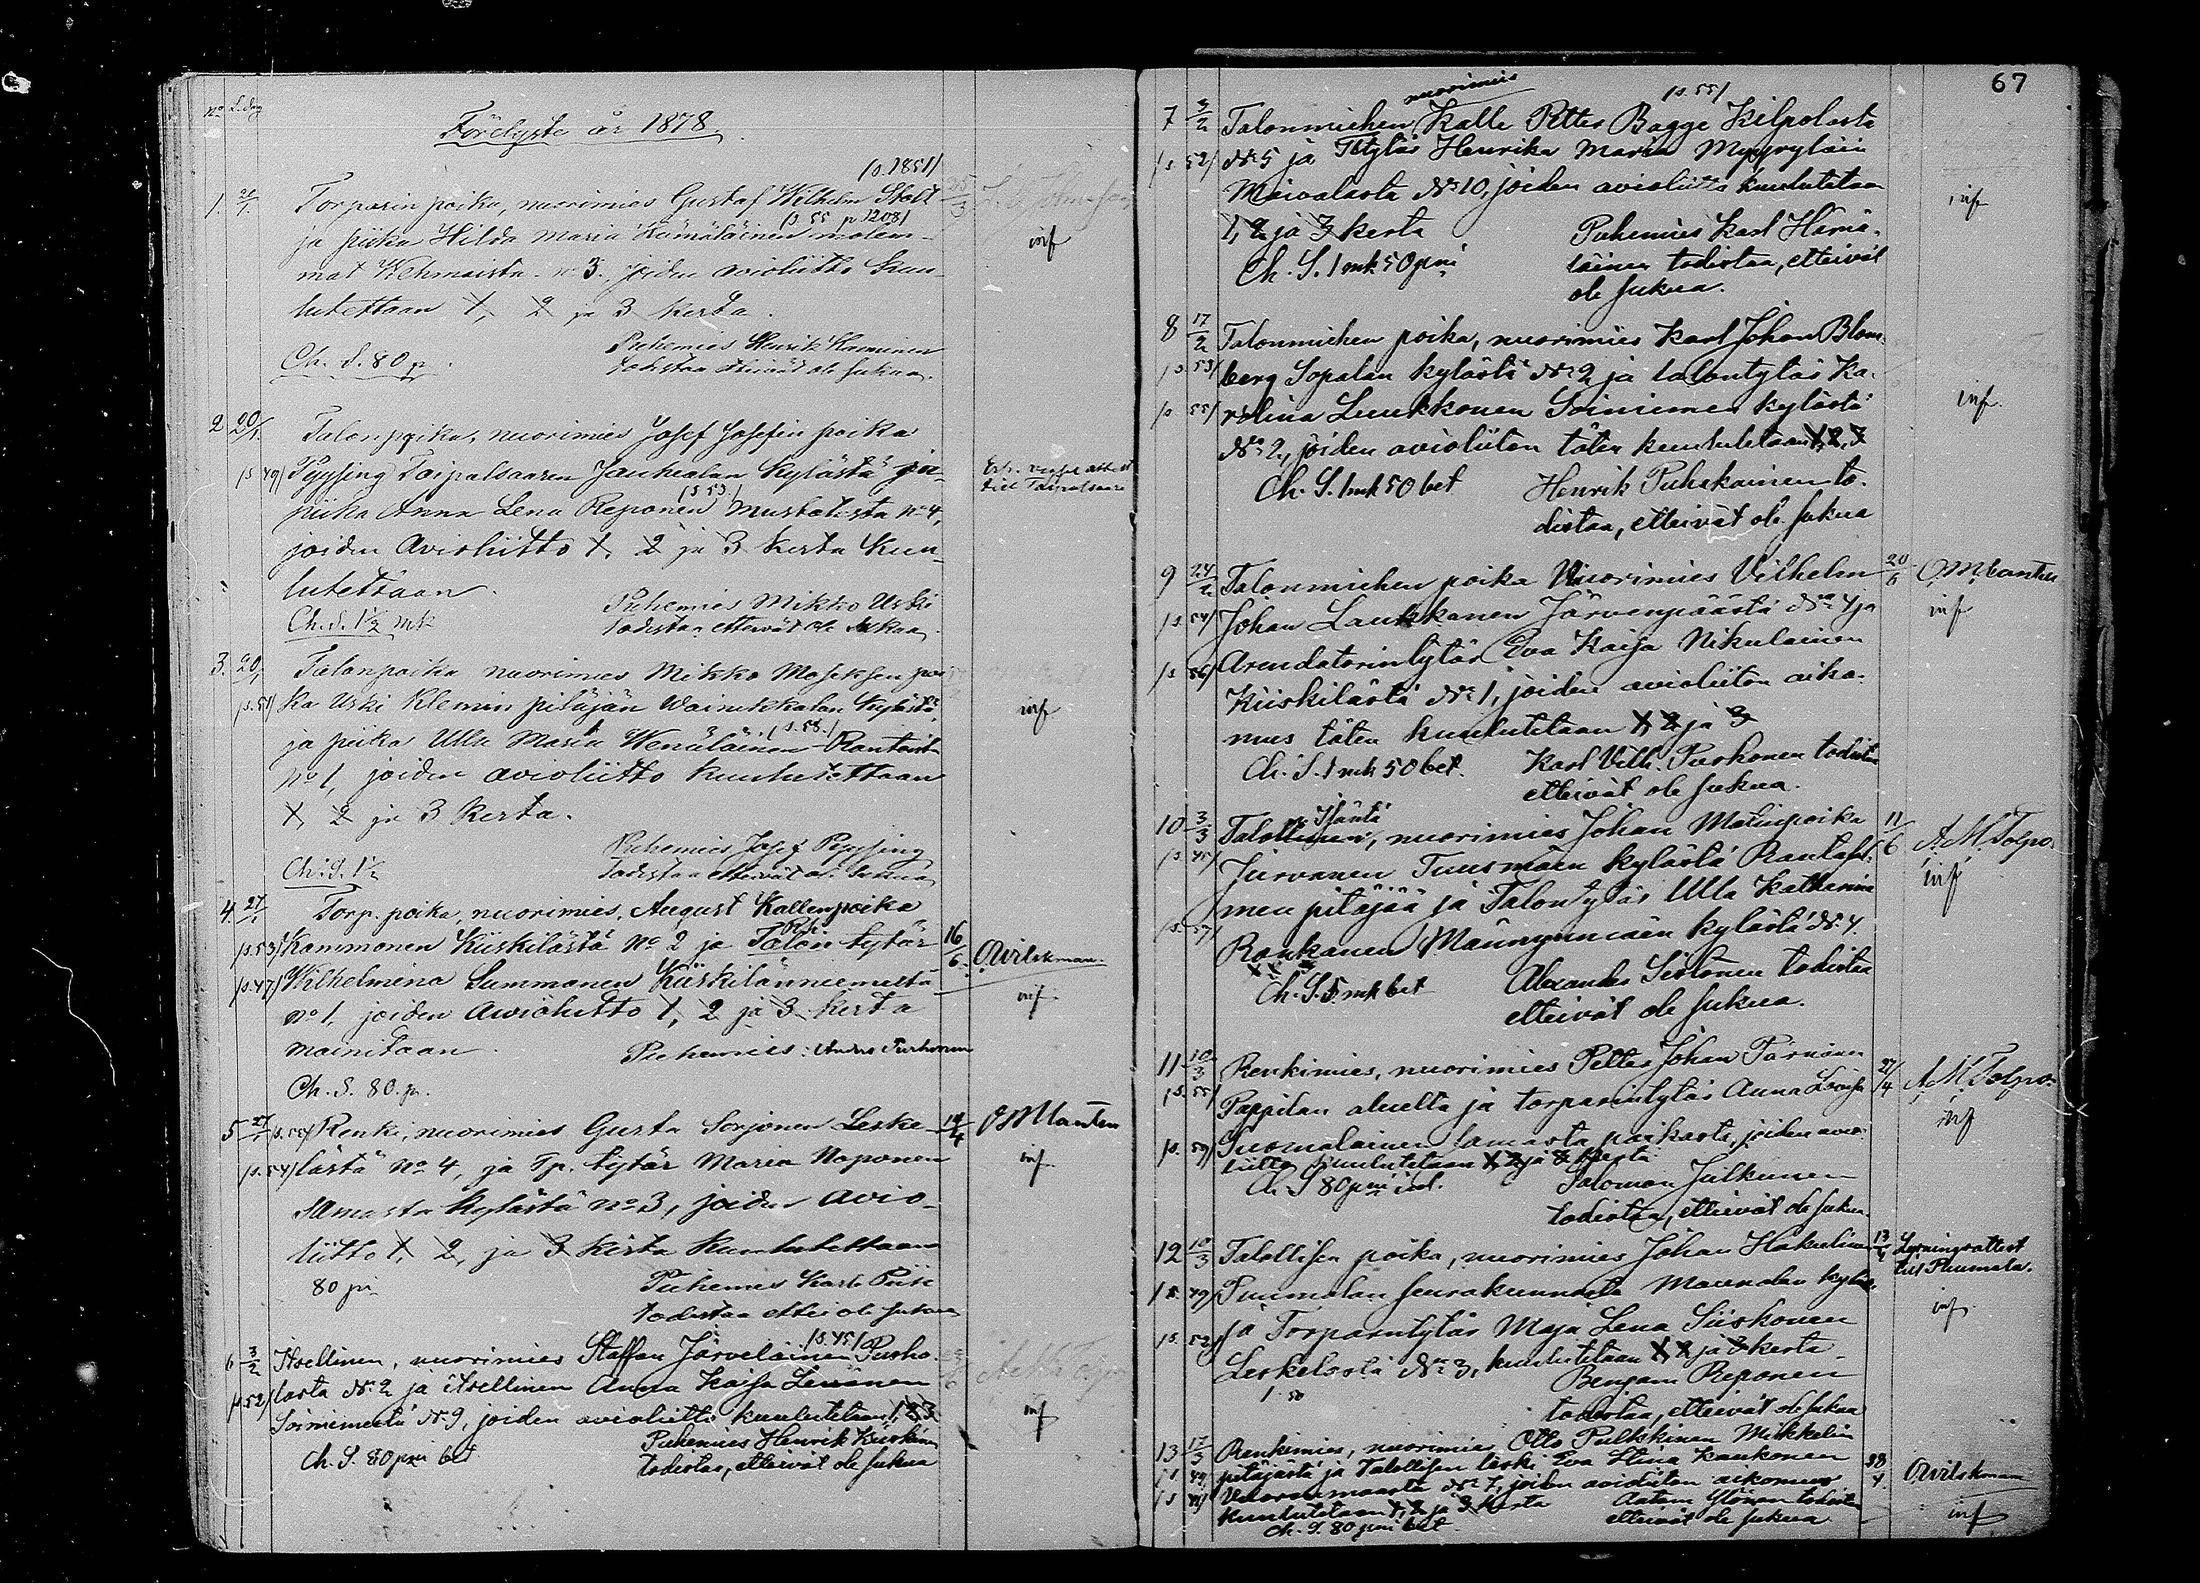 No L. dag
Förelyste år 1878.
/s. 1851/
1. Torparin poika, nuorimies Gustaf Wilhelm Stolt
/s. 55 p 1208/
ja piika Hilda Maria Hämäläinen molem-
mat Wehmaista no 3. joiden avioliitto kuu-
lutettaan 1, 2 ja 3 kerta.
Puhemies Henrik
Ch. S. 80 p. todistaa etteivät ole sukua.
inf
2 20/1. Talonpoika, nuorimies Josef Josefin poika
/s 49/ Pyysing Taipalsaaren Jauhialan kylästä ja
/s 53/
piika Anna Lena Reponen Mustolasta no 4,
joiden Avioliitto 1, 2 ja 3 kerta kuu-
lutettaan.
Puhemies Mikko Uski
Ch. S. 1½ mk todistaa etteivät ole sukua.
till Taipalsaari
3. 20/1 Talonpoika nuorimies Mikko Moseksen poi-
/s. 51/ ka Uski Klemin pitäjän Wainikkalan kylästä,
/s. 58./
ja piika Ulla Maria Wenäläinen Rantait
no 1, joiden avioliitto kuulutettaan
1, 2 ja 3 kerta.
Puhemies Josef Pyysing
Ch. S. 1½ todistaa etteivät ole sukua
inf
4. 27/1 Torp. poika, nuorimies, August Kallenpoika
/s. 53/ Kammonen Kiiskilästä No 2 ja Talon tytär
/s. 47/ Wilhelmina Summanen Kiiskilänniemeltä
no 1, joiden Avioliitto 1, 2 ja 3 kerta
mainitaan. Puhemies: Anders Purhonen
Ch. S. 80. p.
16/6 O Wilskman
inf
5 27/1 Renki, nuorimies Gusta Sorjonen Leske-
/s. 54/ lästä no 4, ja Tp. tytär Maria Naponen
samasta kylästä no 3, joiden avio-
liitto 1, 2, ja 3 kerta kuulutettaan
80 pi Puhemies Karle
todistaa ettei ole sukua
14/4 O M Mantén
inf
/s. 45/
6 3/2 Itsellinen, nuorimies Staffan Järveläinen Purho-
/s. 52/ lasta No 2 ja itsellinen Anna Kaisa Leinonen
Soinimestä No 9, joiden avioliitto kuulutetaan 1, 2, 3
Puhemies Henrik
Ch. S. 80 pni bet todistaa, etteivät ole sukua
inf
67
nuorimies /s. 55/
7 3/2 Talonmiehen Kalle Petter Bagge Kilpolasta
/s 52/ No 5 ja Ttytär Henrika Maria Myyryläin
Maivalasta No 10, joiden avioliitto kuulutetaan
1, 2 ja 3 kerta Puhemies Karl Hämä-
Ch. S. 1 mk 50 pni läinen todistaa, etteivät
ole sukua.
inf
8 17/2 Talonmiehen poika, nuorimies Karl Johan Blom-
/s. 53/ berg Sopalan kylästä No 2 ja talontytär Ka-
/s 55/ rolina Luukkonen Soinimen kylästä
No 2, joiden avioliiton täten kuulutetaan 1, 2, 3
Ch. S. 1 mk 50 bet Henrik Puhakainen to-
distaa, etteivät ole sukua
inf.
9 24/2 Talonmiehen poika Nuorimies Vilhelm
/s. 54/ Johan Laukkanen Järvenpäästä No 4 ja
/s 56/ Arendatorintytär Eva Kaisa Nikulainen
Kiiskilästä No 1, joiden avioliiton aiko-
mus täten kuulutetaan 1, 2 ja 3
Ch. S. 1 mk 50 bet. Karl Vilh. Purhonen todistaa
etteivät ole sukua.
20/6 O. M. Mantén
inf
Isäntä
10 3/3 Talollinen, nuorimies Johan Matinpoika
/s. 45/ Jurvanen Tuusmäen kylästä Rantasal-
men pitäjää ja Talontytär Ulla Katharina
/s. 57/ Raukanen Männynmäen kylästä No 4.
Ch. S. 5 mk bet Alexander Sistonen todistaa
etteivät ole sukua.
11/6 A. M. Tolpo.
inf
11 10/3 Renkimies, nuorimies Petter Johan Pärnänen
/s. 55/ Pappilan alueelta ja torparintytär Anna Lovisa
/s. 59/ Suomalainen samasta paikasta, joiden avio-
liitto kuulutetaan 1, 2 ja 3 kerta
Ch. S 80 pni Salomon Julkunen
todistaa, etteivät ole sukua.
27/4 A. M. Tolpo
inf
12 10/3 Talollisen poika, nuorimies Johan Hakulinen
/s. 49/ Puumalan seurakunnasta Maunolan kylää
/s. 52/ ja Torparintytär Maja Lena Siiskonen
Leskelästä No 3, kuulutetaan 1, 2 ja 3 kerta
1. 50 Benjam Reponen
todistaa, etteivät ole sukua
Lysningsattest
till Puumala.
inf.
13 17/3 Renkimies, nuorimies Otto Pulkkinen Mikkelin
pitäjästä ja Talollisen leski Eva Stina Kaukonen
Vuorenmaasta No 7, joiden avioliiton aikomus
kuulutetaan 1, 2 ja 3 kerta Aatam Ylönen todistaa
Ch. S. 80 pni bet. etteivät ole sukua
O Wilskman
inf